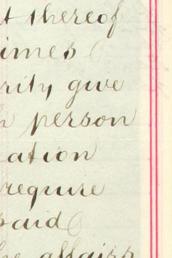 t thereof
imes
rity give
person
ation
require
paid
he affairs